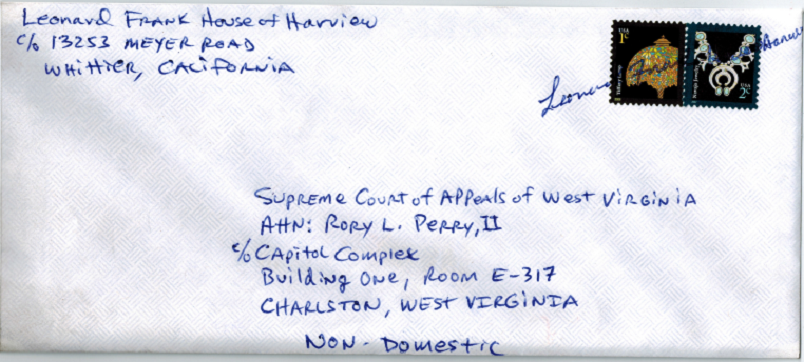 Leonard Frank House of Harview
c/o 13253 Meyer Road
Whittier, California
USA 1c
Tiffany Lamp
USA 2c
Navajo Jewelry
Supreme Court of Appeals of West Virginia
Attn: Rory L. Perry, II
c/o Capitol Complex
Building One, Room E-317
Charlston, West Virginia
Non-Domestic